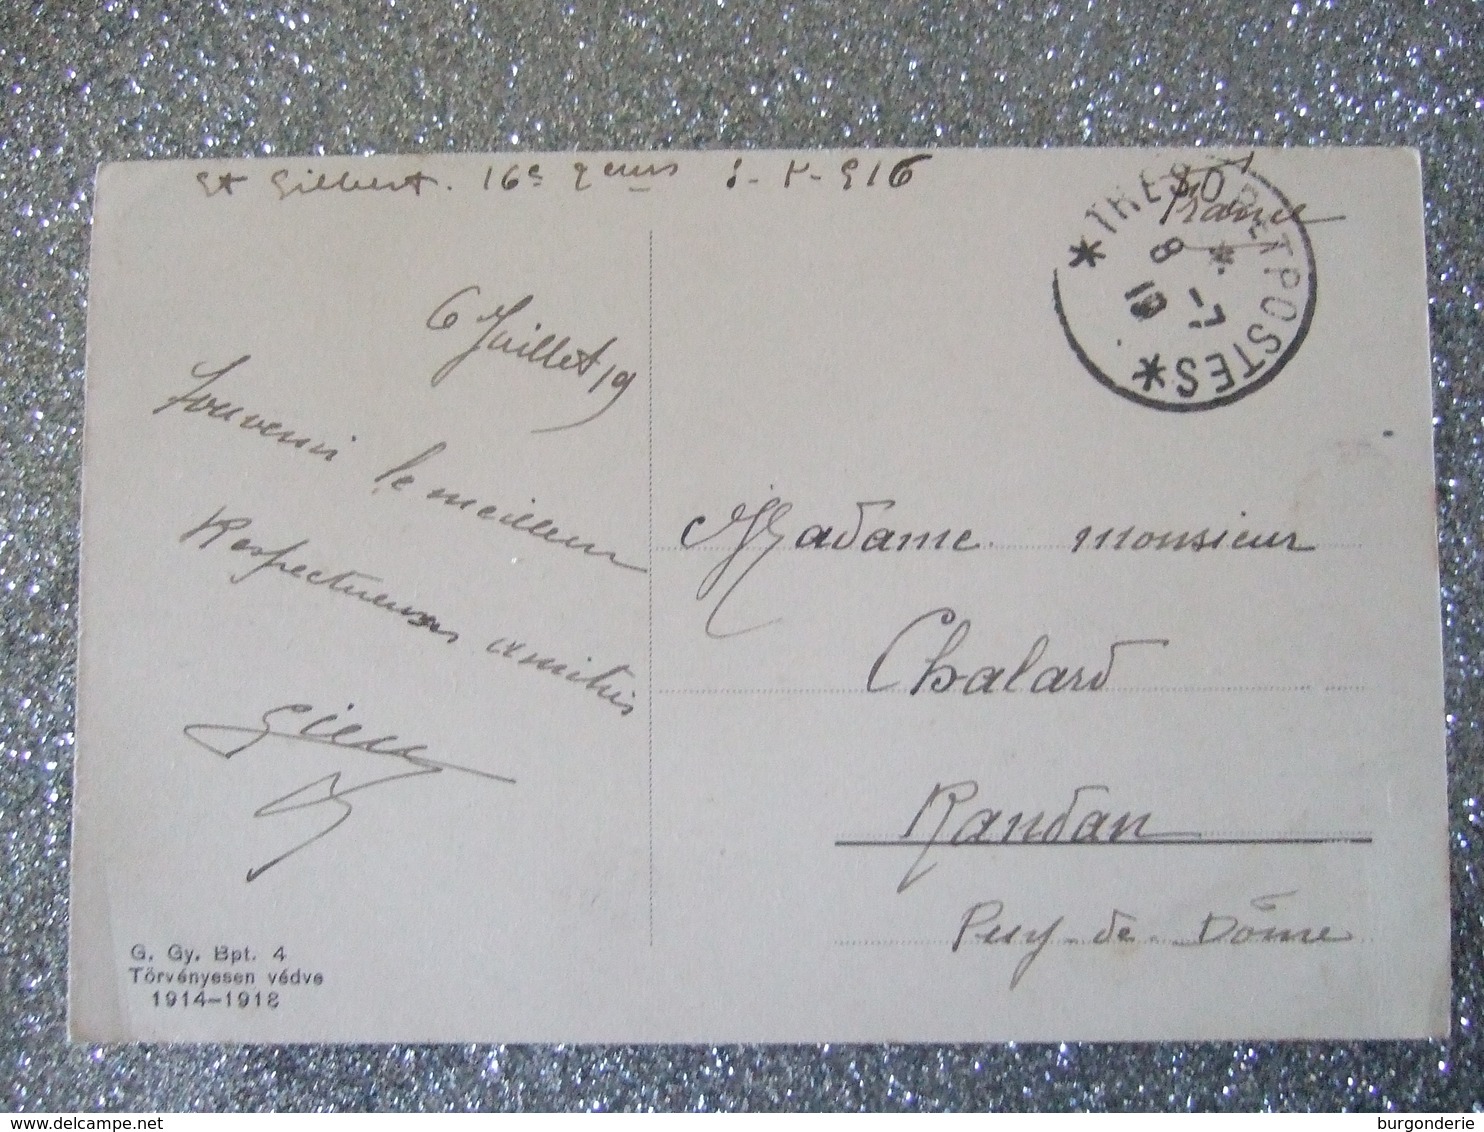 St Gilbert. 16e S-P-516
France
TRESOR ET POSTES
8
7
19
6 Juillet 19
Souvenir le meilleur
Respectueuses amitiés
Madame monsieur
Chalard
Randan
Puy-de-Dôme
G. Gy. Bpt. 4
Törvényesen védve
1914-1918
www.delcampe.net
burgonderie